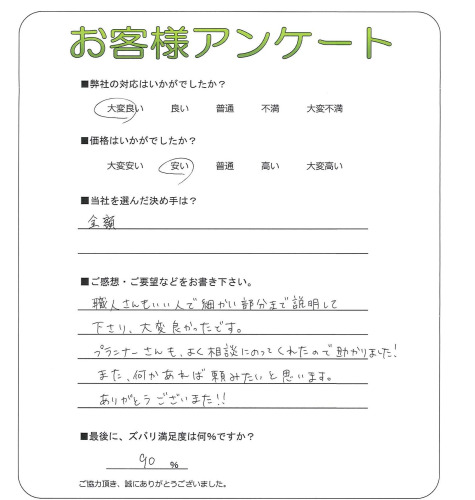 お客様アンケート
■弊社の対応はいかがでしたか？
大変良い 良い 普通 不満 大変不満
■価格はいかがでしたか？
大変安い 安い 普通 高い 大変高い
■当社を選んだ決め手は？
金額
■ご感想・ご要望などをお書き下さい。
職人さんもいい人で細かい部分まで説明して
下さり、大変良かったです。
プランナーさんも、よく相談にのってくれたので助かりました!
また、何かあれば頼みたいと思います。
ありがとうございました!!
■最後に、ズバリ満足度は何%ですか？
90 %
ご協力頂き、誠にありがとうございました。